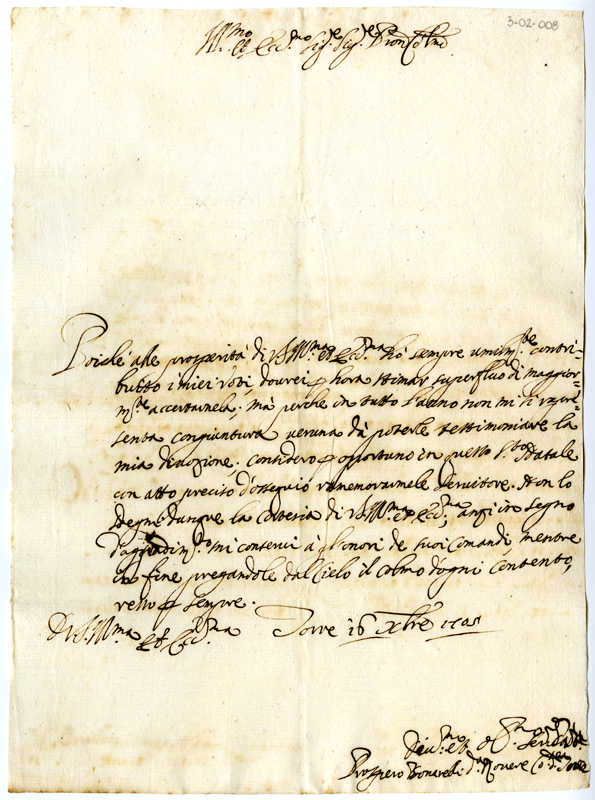 3-02-008
Ill.mo et Ecc.mo Sig.re Sig.re P.ron Col.mo
Poiche alle prosperità di V.S. Ill.ma et Ecc.ma hò sempre umilm.te contri-
buito i miei Voti, dovrei p hora stimar superfluo di maggior-
m.te accertarnela; mà perche in tutto l'anno non mi si rapre-
senta congiuntura veruna dà poterle testimoniare la
mia divozione. Considero p opportuno in questo S.to Natale
con atto preciso d'ossequio rimemorarmele Servitore. Non lo
sdegni dunque la Cortesia di V.S. Ill.ma et Ecc.ma, anzi in segno
d'agradim.to mi conservi à gl'onori de suoi Comandi, mentre
in fine pregandole dal Cielo il Colmo d'ogni Contento,
resto p sempre.
Di V.S. Ill.ma et Ecc.ma Torre 16 Xbre 1705
Div.mo et Ser.
Prospero Bonarelli d.a Rovere Co: d.a Torre